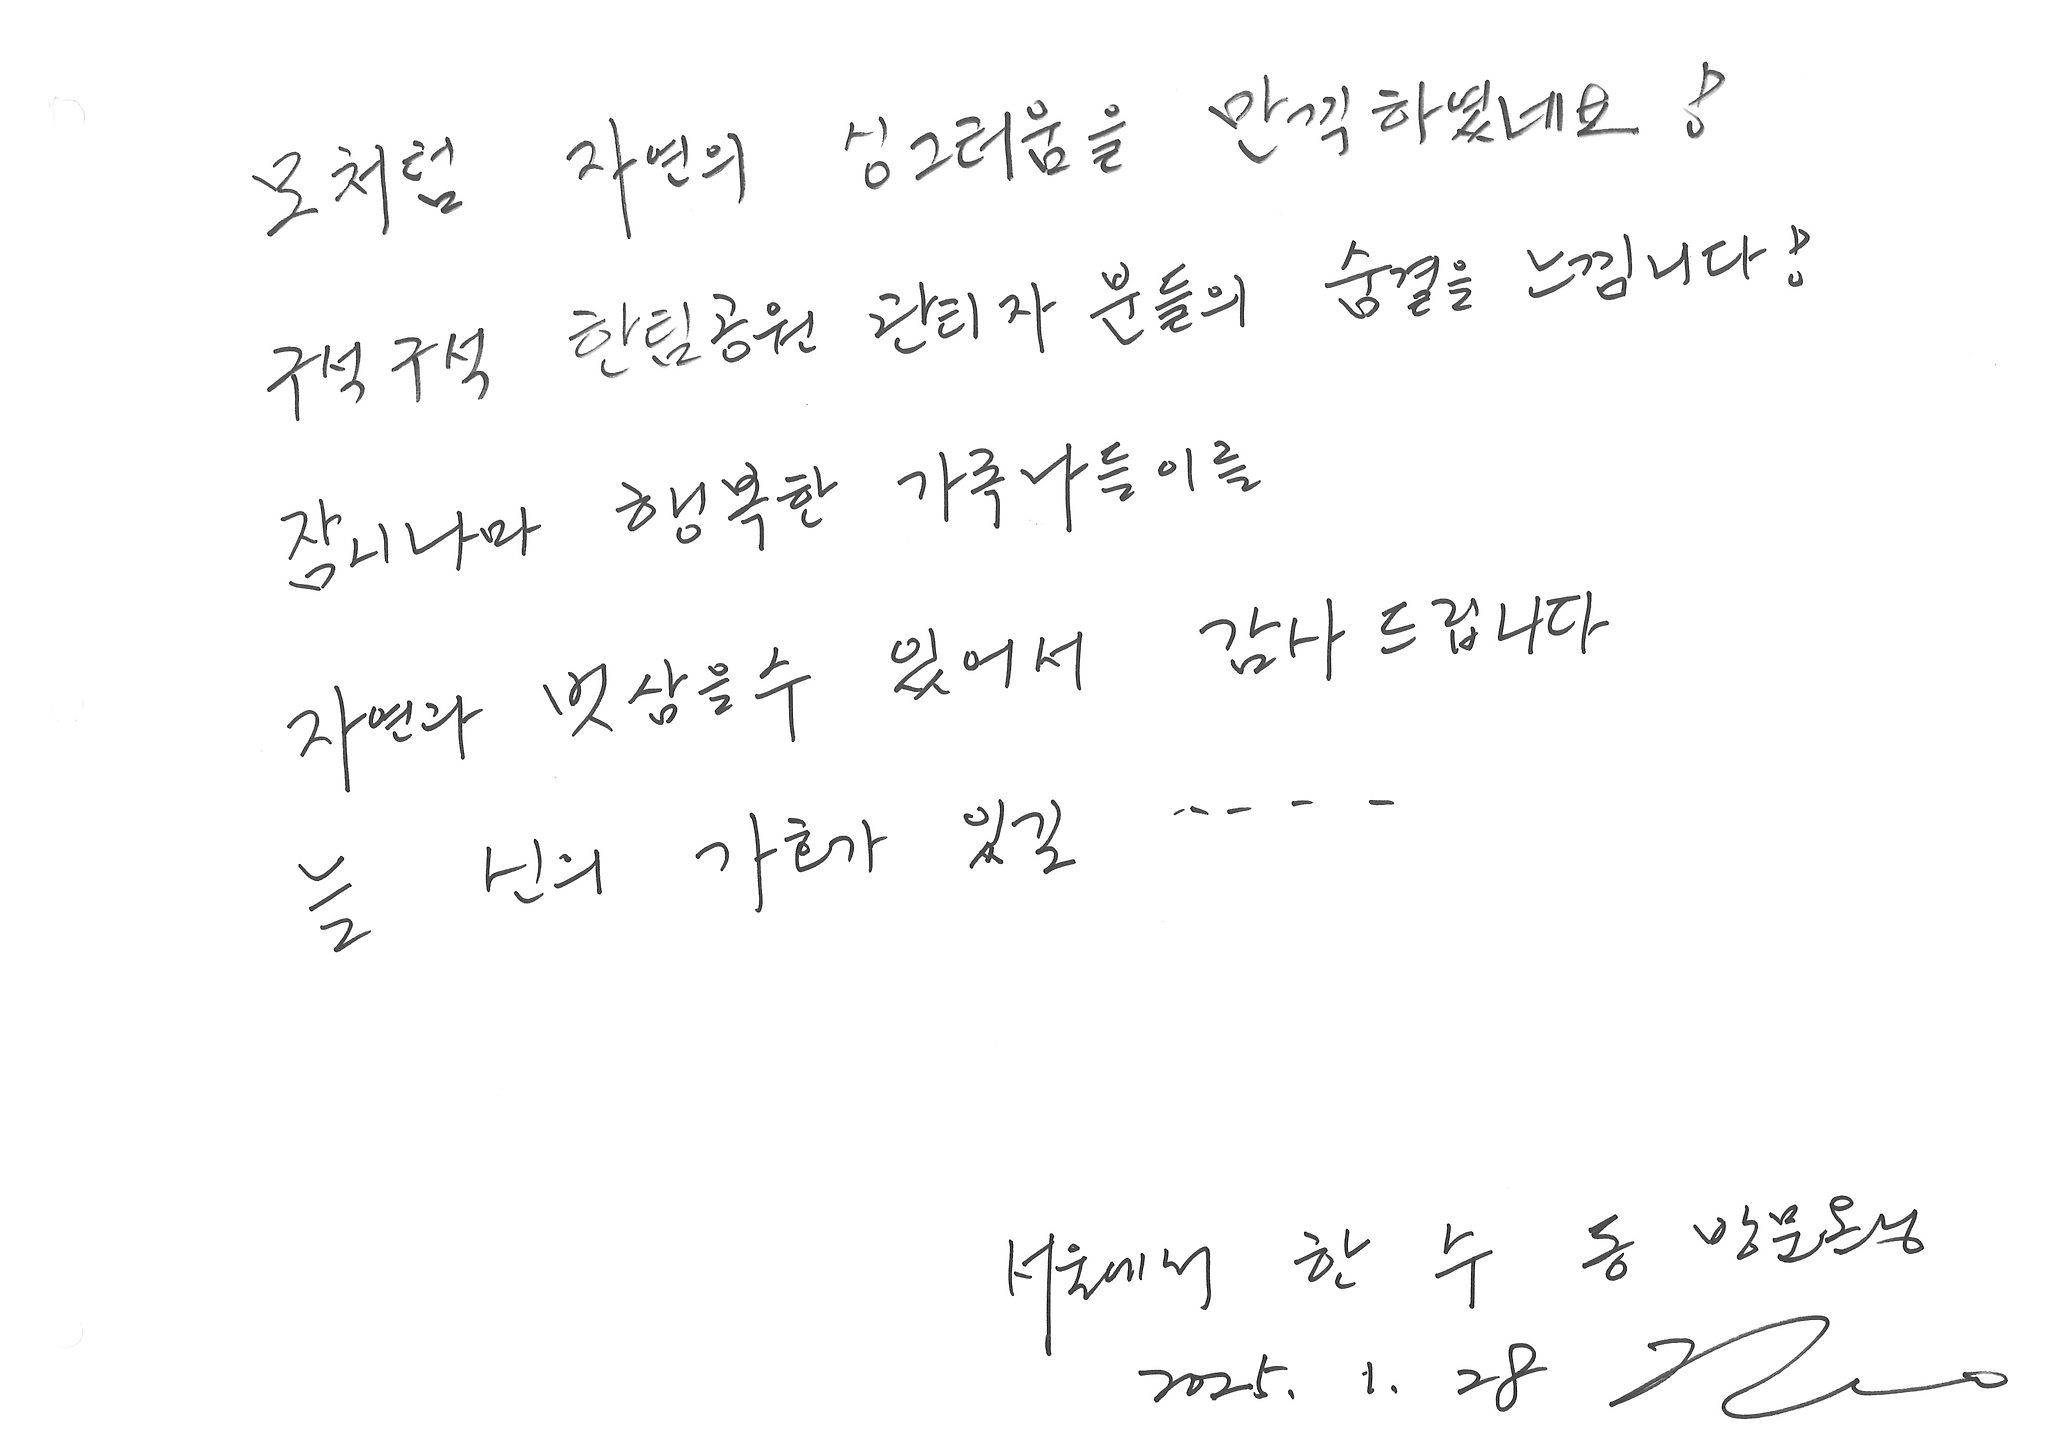 모처럼 자연의 싱그러움을 만끽하였네요!
구석구석 한림공원 관리자 분들의 숨결을 느낍니다!
잠시나마 행복한 가족나들이를
자연과 벗삼을수 있어서 감사드립니다
늘 신의 가호가 있길 -----
서울에서 한 수 동 방문온
2025. 1. 28